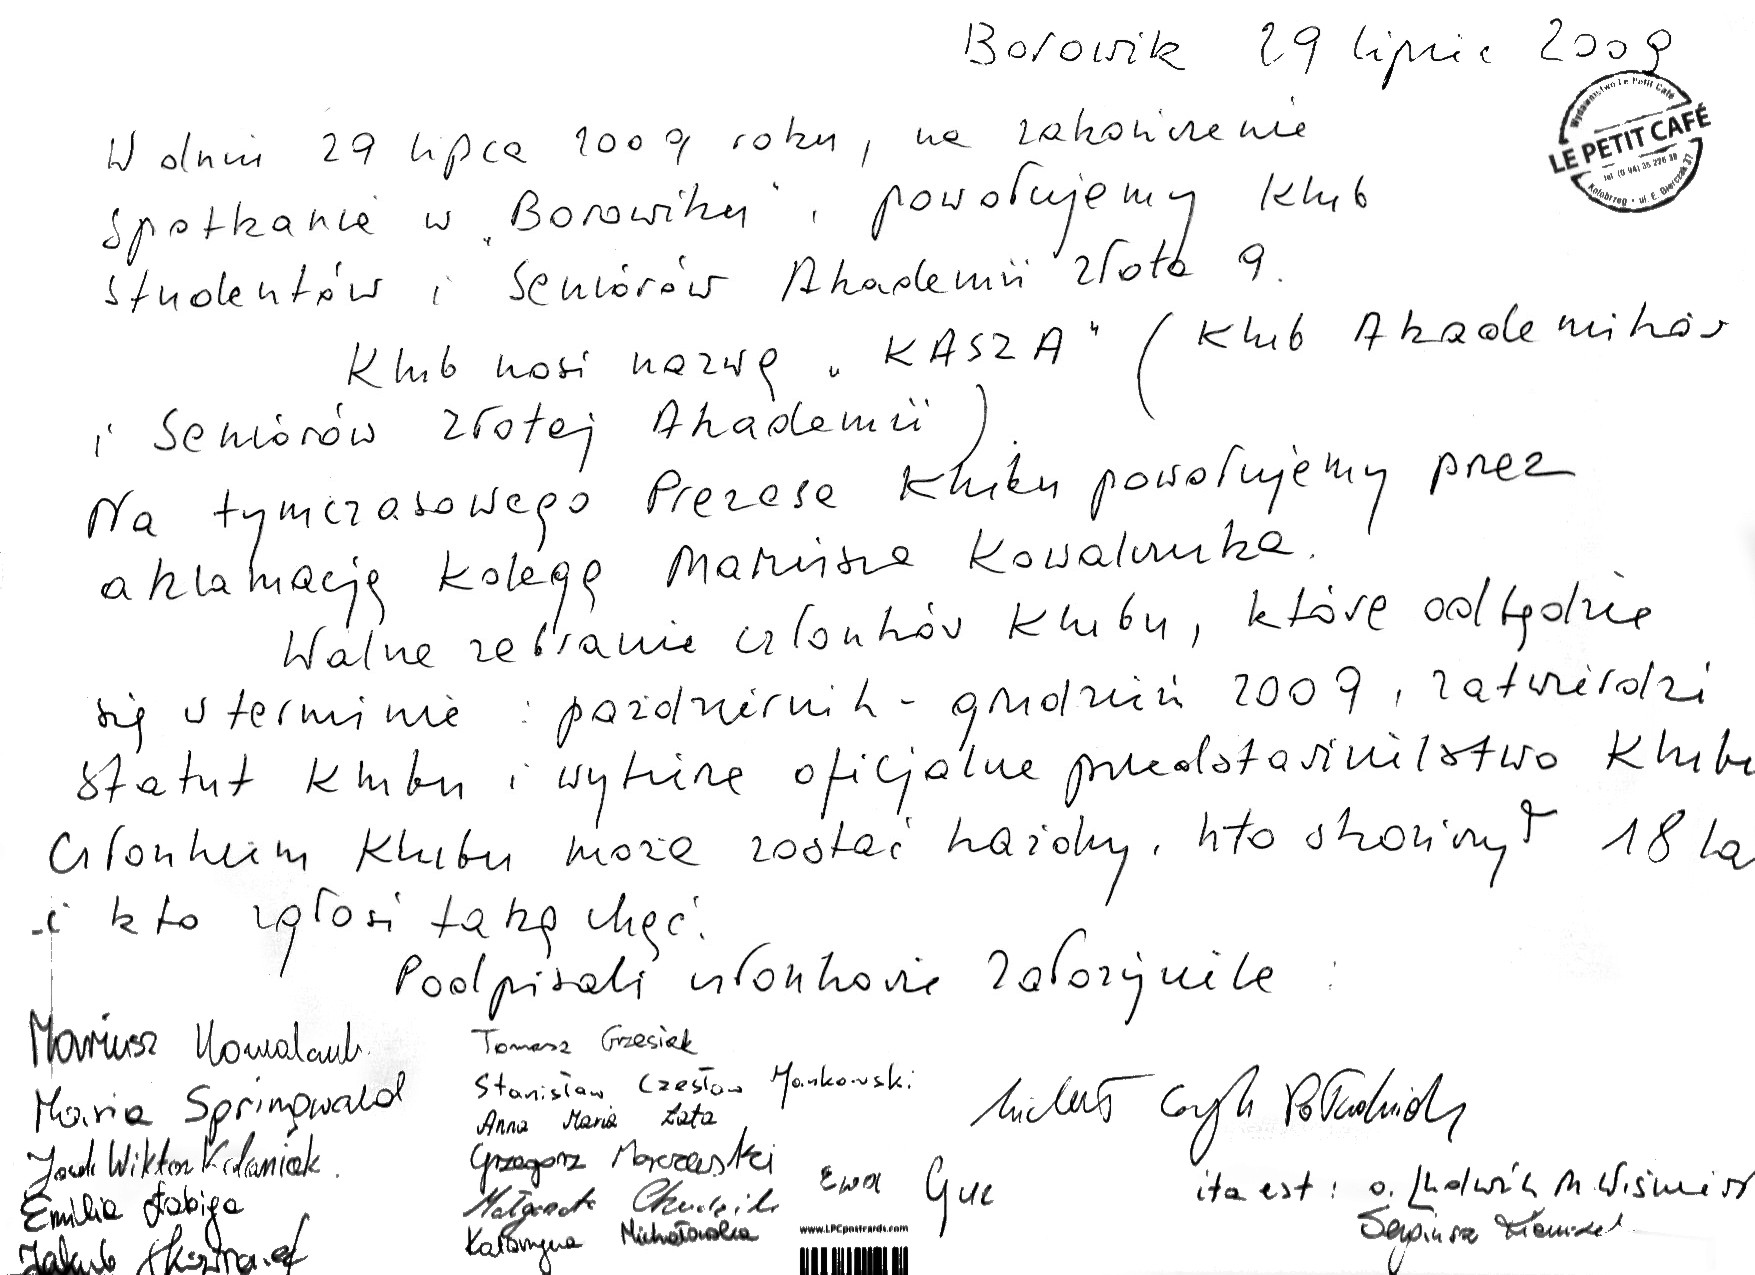 Borowik 29 lipiec 2009
Wydawnictwo Le Petit Café
LE PETIT CAFÉ
tel. (0 94) 35 226 38
Kołobrzeg • ul. E. Gierczak 37
W dniu 29 lipca 2009 roku, na zakończenie
spotkania w „Borowiku”, powołujemy Klub
Studentów i Seniorów Akademii Złota 9.
Klub nosi nazwę „KASZA” (Klub Akademików
i Seniorów Złotej Akademii).
Na tymczasowego Prezesa Klubu powołujemy przez
aklamację kolegę Mariusza Kowalczuka.
Walne zebranie członków Klubu, które odbędzie
się w terminie : październik - grudzień 2009, zatwierdzi
statut Klubu i wybierze oficjalne przedstawicielstwo Klubu
Członkiem Klubu może zostać każdy, kto skończył 18 la
i kto zgłosi taką chęć.
Podpisali członkowie założyciele :
Mariusz Kowalczuk
Maria Springwald
Jacek Wiktor
Emilia Łabiga
Jakub
Tomasz Grzesiak
Stanisław Czesław Mankowski
Anna Maria Łata
Grzegorz
Małgorzata
Katarzyna Michałowska
Ewa Guc
www.LPCpostcards.com
ita est : o. Ludwik M. Wiśniew